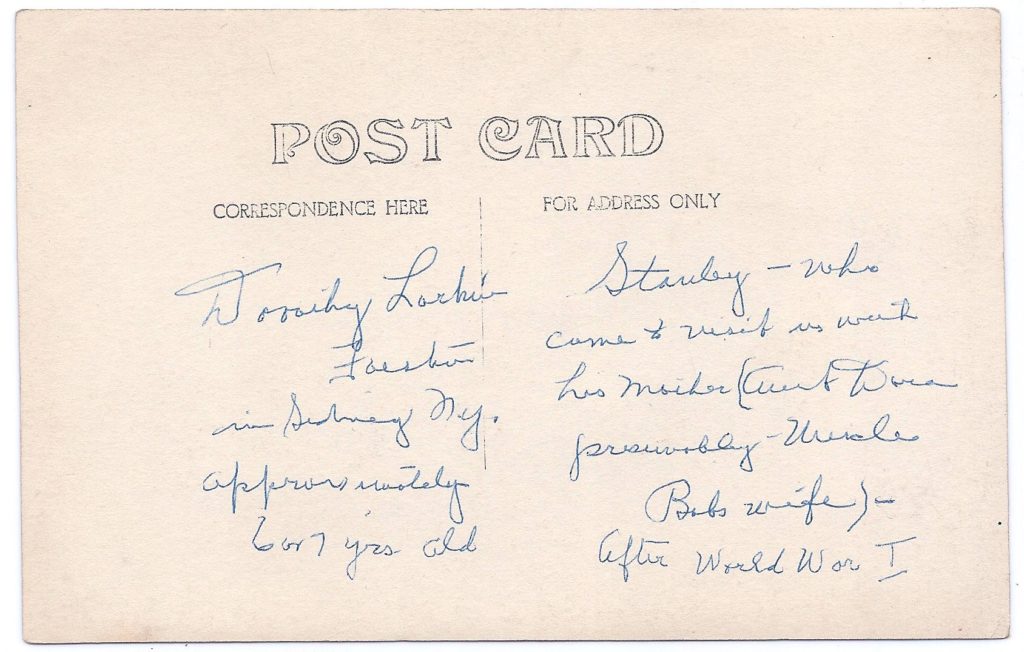 POST CARD
CORRESPONDENCE HERE
FOR ADDRESS ONLY
Dorothy Larkin
in Sidney N.y.
approximately
6 or 7 yrs old
Stanley - who
came to visit us with
his mother (Aunt Dora
presumably - Uncle
Bobs wife) -
after World War I